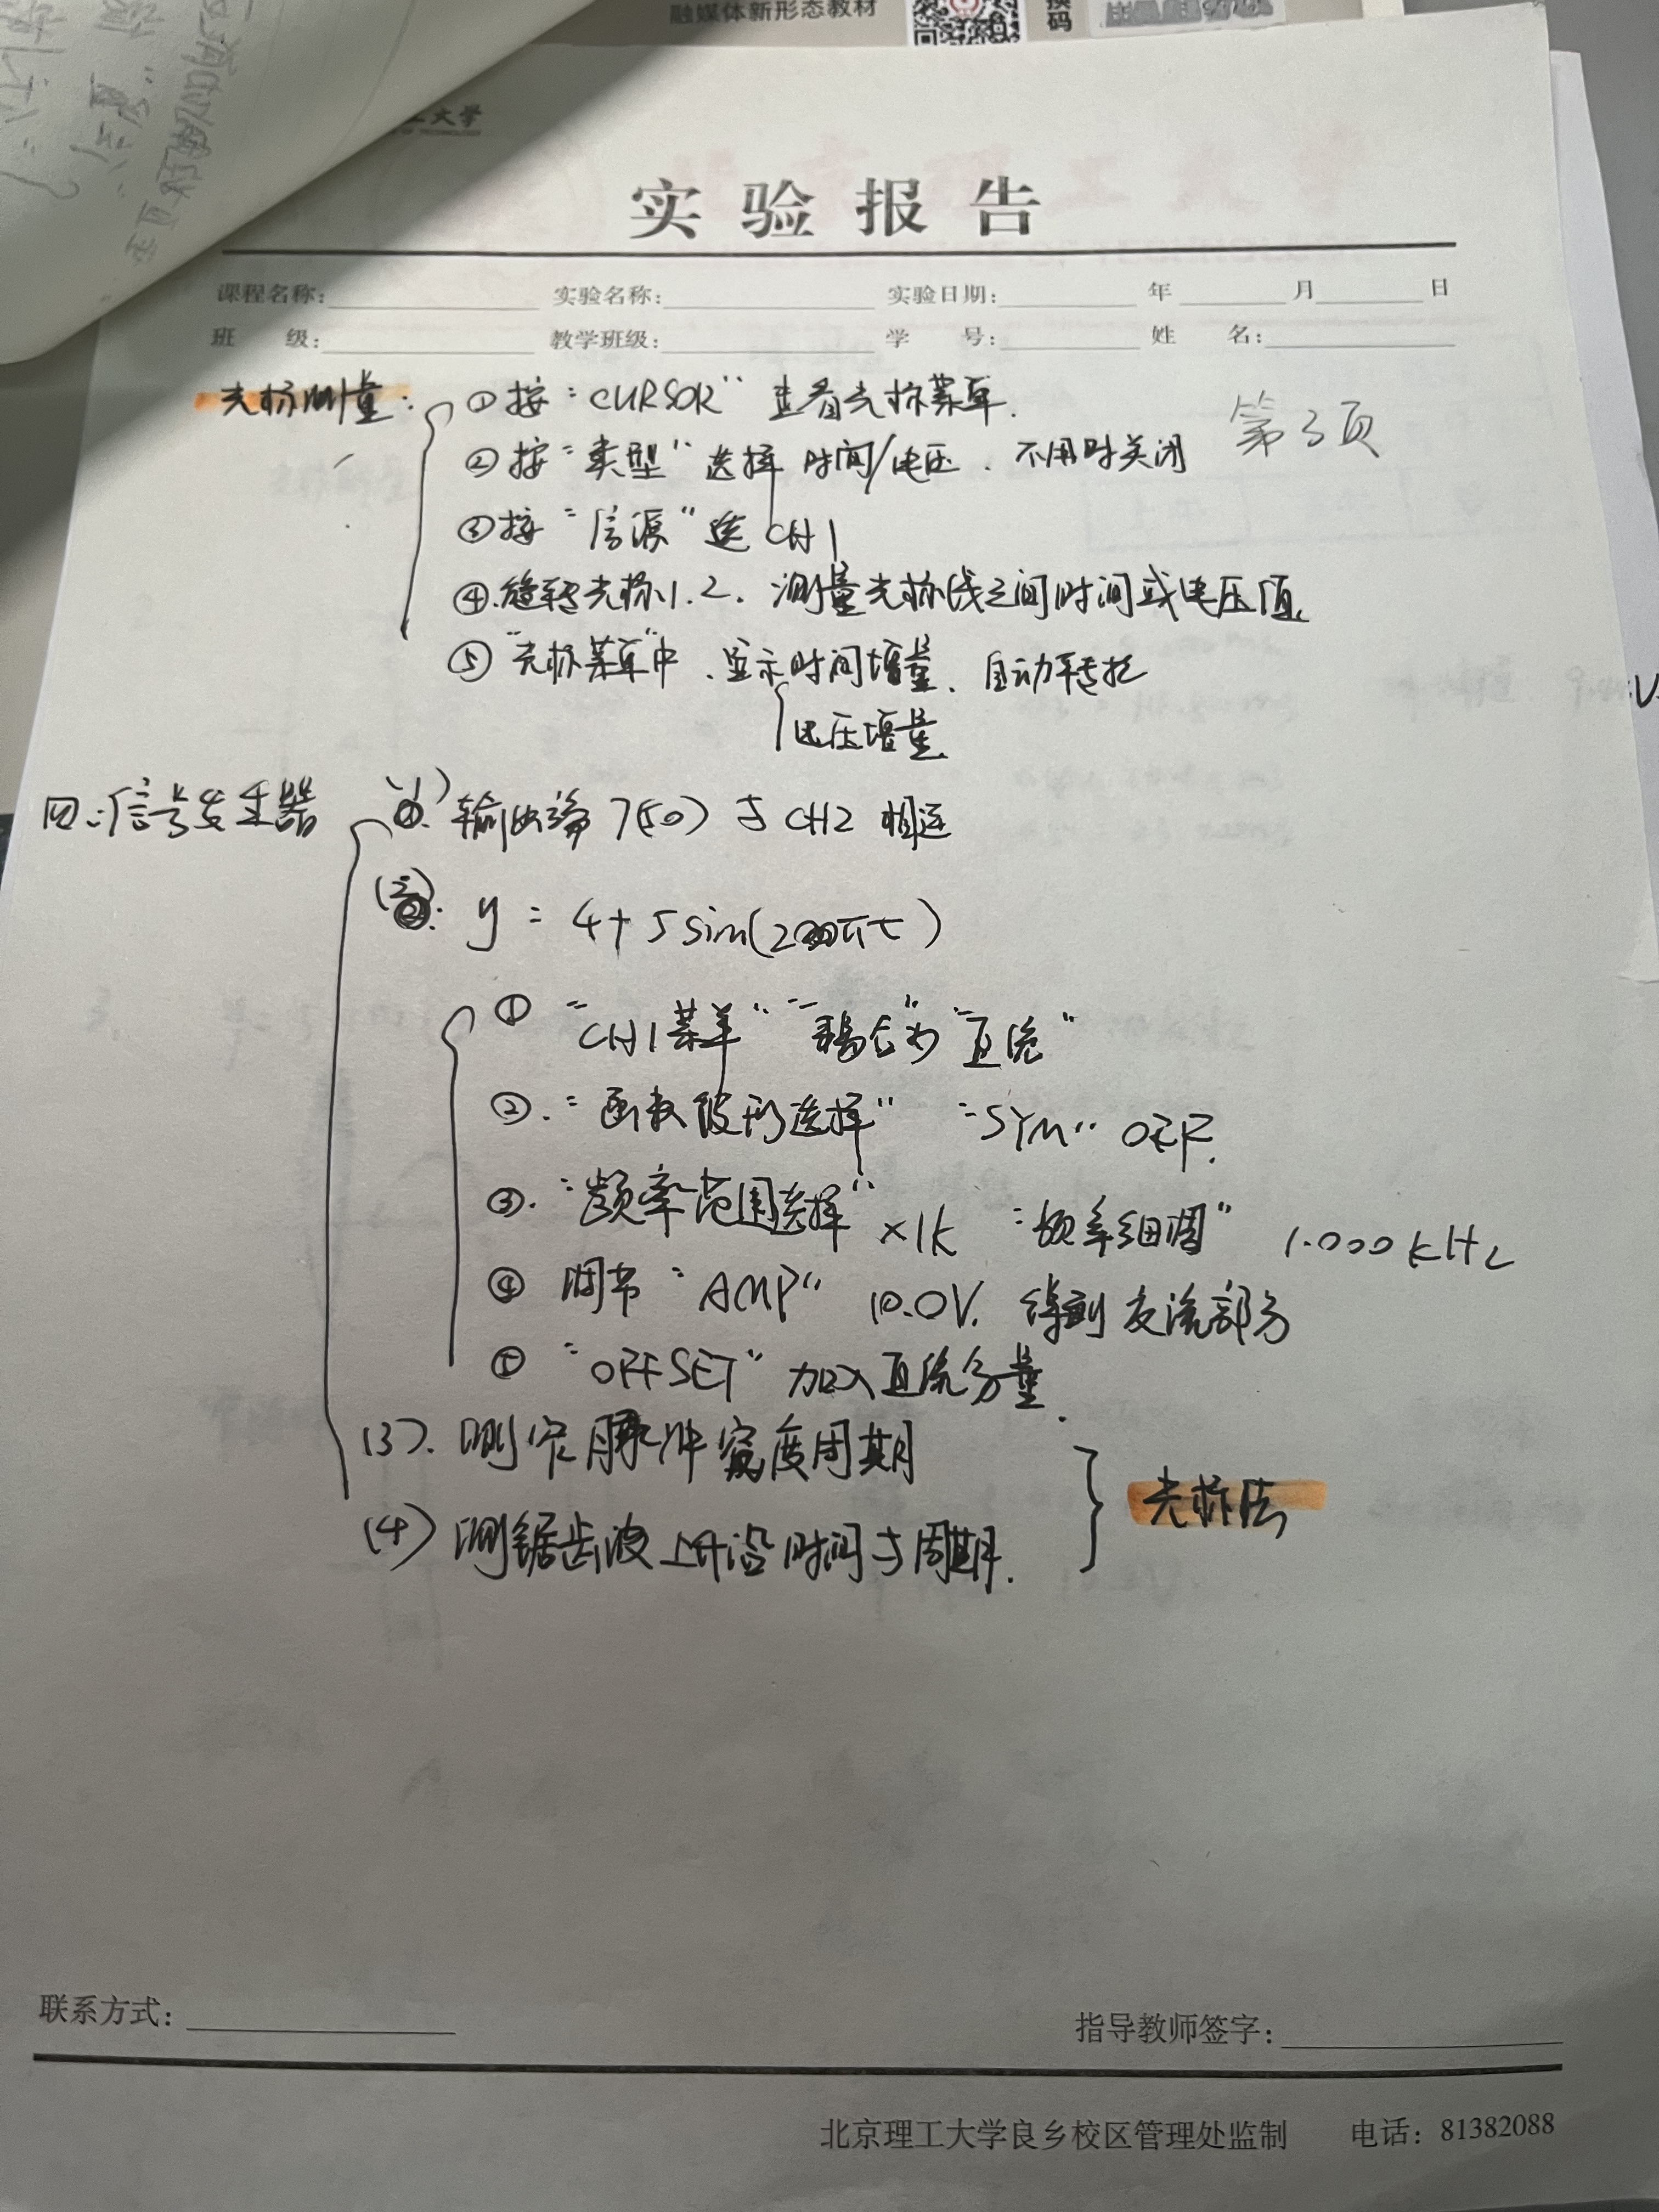 融媒体新形态教材
换码
工大学
实验报告
课程名称: 实验名称: 实验日期: 年 月 日
班 级: 教学班级: 学 号: 姓 名:
第3页
光标测量:
①按"CURSOR"查看光标菜单.
②按"类型"选择时间/电压.不用时关闭
③按"信源"选CH1
④.旋转光标1.2.测量光标线之间时间或电压值.
⑤"光标菜单"中.显示时间增量、自动转换
电压增量
四:信号发生器
(1).输出端7(50)与CH2相连
(2). y = 4+5sin(2000πt)
① "CH1菜单""耦合"为"直流"
②."函数波形选择" "SYM" OFF.
③."频率范围选择"×1k "频率细调" 1.000kHz
④ 调节"AMP" 10.0V. 得到交流部分
⑤ "OFFSET"加入直流分量.
(3). 测定脉冲宽度周期
(4) 测锯齿波上升沿时间与周期.
光标法
联系方式:
指导教师签字:
北京理工大学良乡校区管理处监制 电话: 81382088